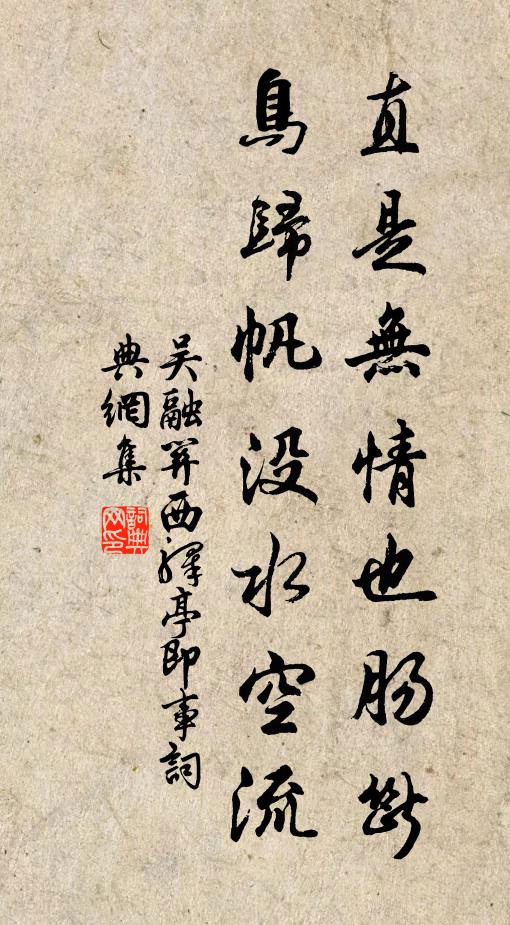 直是無情也腸斷
鳥歸帆沒水空流
吴融關西驛亭即事詞
典網集
詞典網印